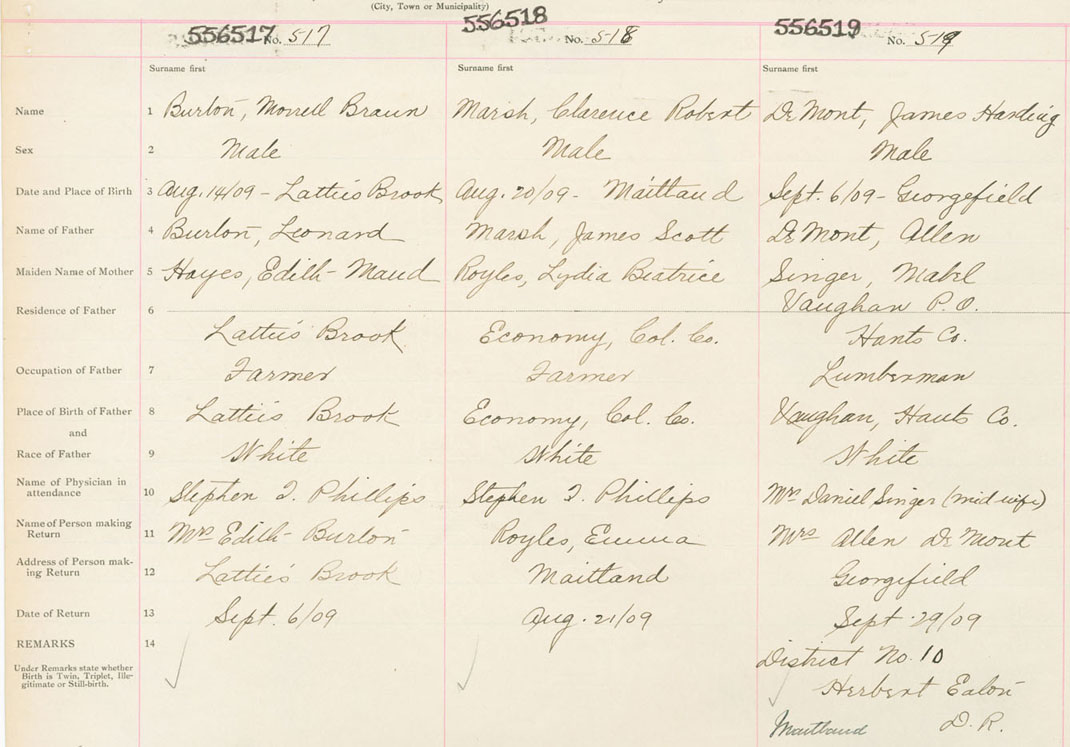 (City, Town or Municipality)
556517 No. 517 556518 No. 518 556519 No. 519
Surname first Surname first Surname first
Name 1 Burton, Morrell Braun Marsh, Clarence Robert DeMont, James Harding
Sex 2 Male Male Male
Date and Place of Birth 3 Aug. 14/09 - Lattie's Brook Aug. 20/09 - Maitland Sept. 6/09 - Georgefield
Name of Father 4 Burton, Leonard Marsh, James Scott DeMont, Allen
Maiden Name of Mother 5 Hayes, Edith Maud Royles, Lydia Beatrice Singer, Mabel
Residence of Father 6 Vaughan P.O.
Lattie's Brook Economy, Col. Co. Hants Co.
Occupation of Father 7 Farmer Farmer Lumberman
Place of Birth of Father 8 Lattie's Brook Economy, Col. Co. Vaughan, Hants Co.
and
Race of Father 9 White White White
Name of Physician in
attendance 10 Stephen T. Phillips Stephen T. Phillips Mrs Daniel Singer (mid wife)
Name of Person making
Return 11 Mrs Edith Burton Royles, Emma Mrs Allen DeMont
Address of Person mak-
ing Return 12 Lattie's Brook Maitland Georgefield
Date of Return 13 Sept. 6/09 Aug. 21/09 Sept. 29/09
REMARKS 14
Under Remarks state whether
Birth is Twin, Triplet, Ille-
gitimate or Still-birth.
District No. 10
Herbert Eaton
Maitland D.R.